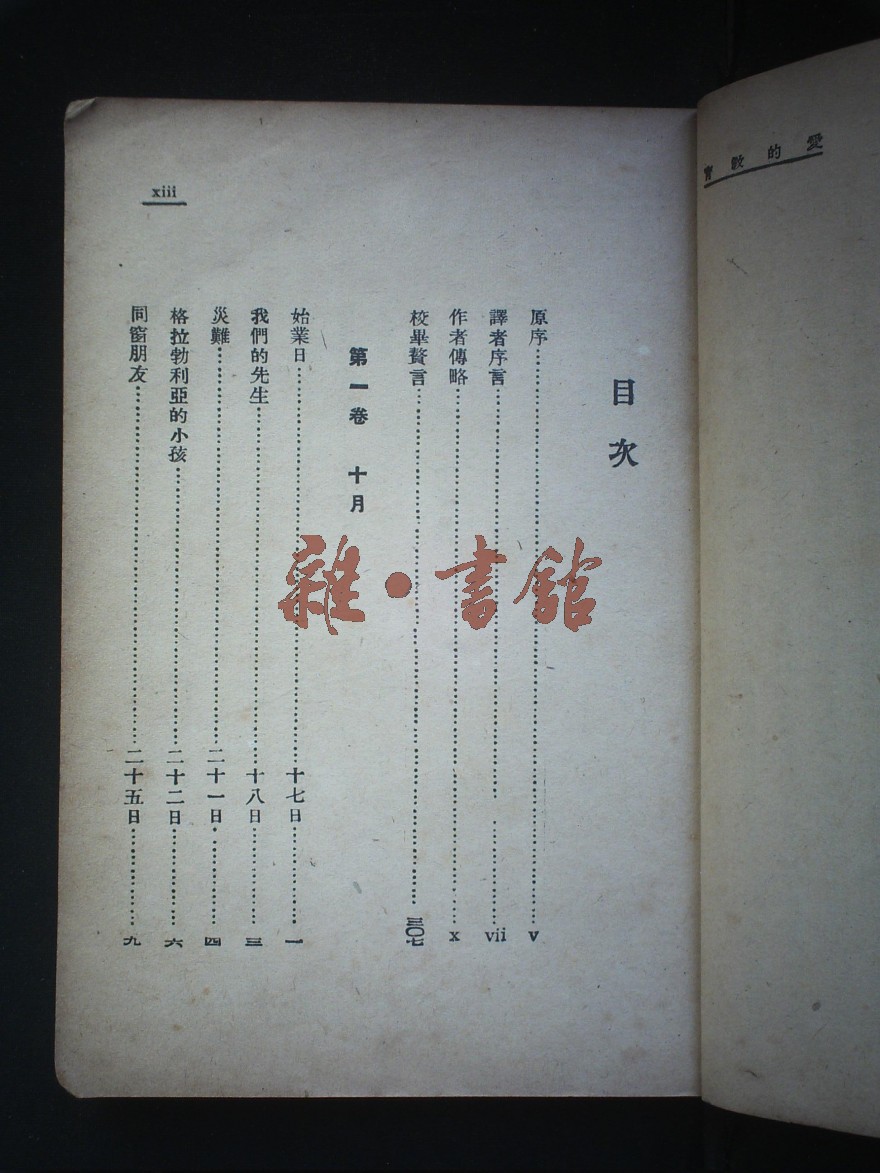 愛的教育
目次
原序 v
譯者序言 vii
作者傳略 x
校畢贅言 三〇七
第一卷 十月
始業日 十七日 一
我們的先生 十八日 三
災難 二十一日 四
格拉勃利亞的小孩 二十二日 六
同窗朋友 二十五日 九
xiii
雜·書館